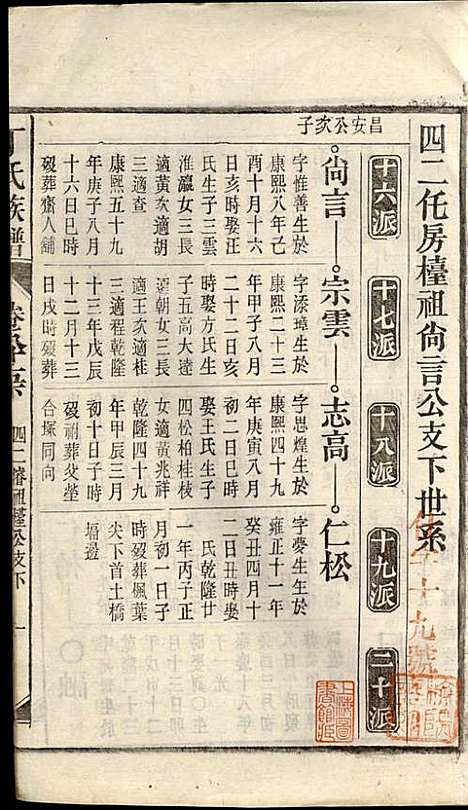 四二任房檯祖尚言公支下世系
十六派
十七派
十八派
十九派
二十派
昌安公次子
尚言
宗雲
志高
仁松
字惟善生於
康熙八年己
酉十月十六
日亥時娶汪
氏生子三雲
淮瀛女三長
適黃次適胡
三適查
康熙五十九
年庚子八月
十六日巳時
歿葬齋人舖
字添璋生於
康熙二十三
年甲子八月
二十二日亥
時娶方氏生
子五高大達
望朝女三長
適王次適桂
三適程乾隆
十三年戊辰
十二月十三
日戌時歿葬
字思煌生於
康熙四十九
年庚寅八月
初二日巳時
娶王氏生子
四松柏桂枝
女適黃兆祥
乾隆四十九
年甲辰三月
初十日子時
歿祔葬父塋
合塚同向
字夢生生於
雍正十一年
癸丑四月十
二日丑時娶
氏乾隆廿
一年丙子正
月初一日子
時歿葬楓葉
尖下首土橋
塥邊
丁氏族譜
四二房檯祖公支下
一